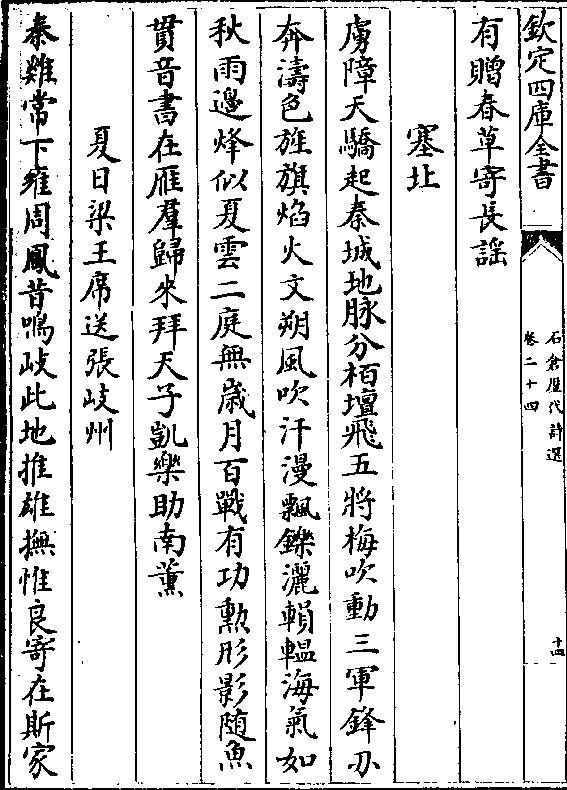 欽定四庫全書
石倉歷代詩選
卷二十四
十四
有贈春草寄長謡
塞北
虜障天驕起秦城地脉分栢壇飛五將梅吹動三軍鋒刃
奔濤色旌旗焰火文朔風吹汗漫飄鑠灑轒轀海氣如
秋雨邊烽似夏雲二庭無歲月百戰有功勲形影随魚
貫音書在雁羣歸來拜天子凱樂助南薰
夏日梁王席送張岐州
秦雞常下雍周鳳昔鳴岐此地推雄撫惟良寄在斯家